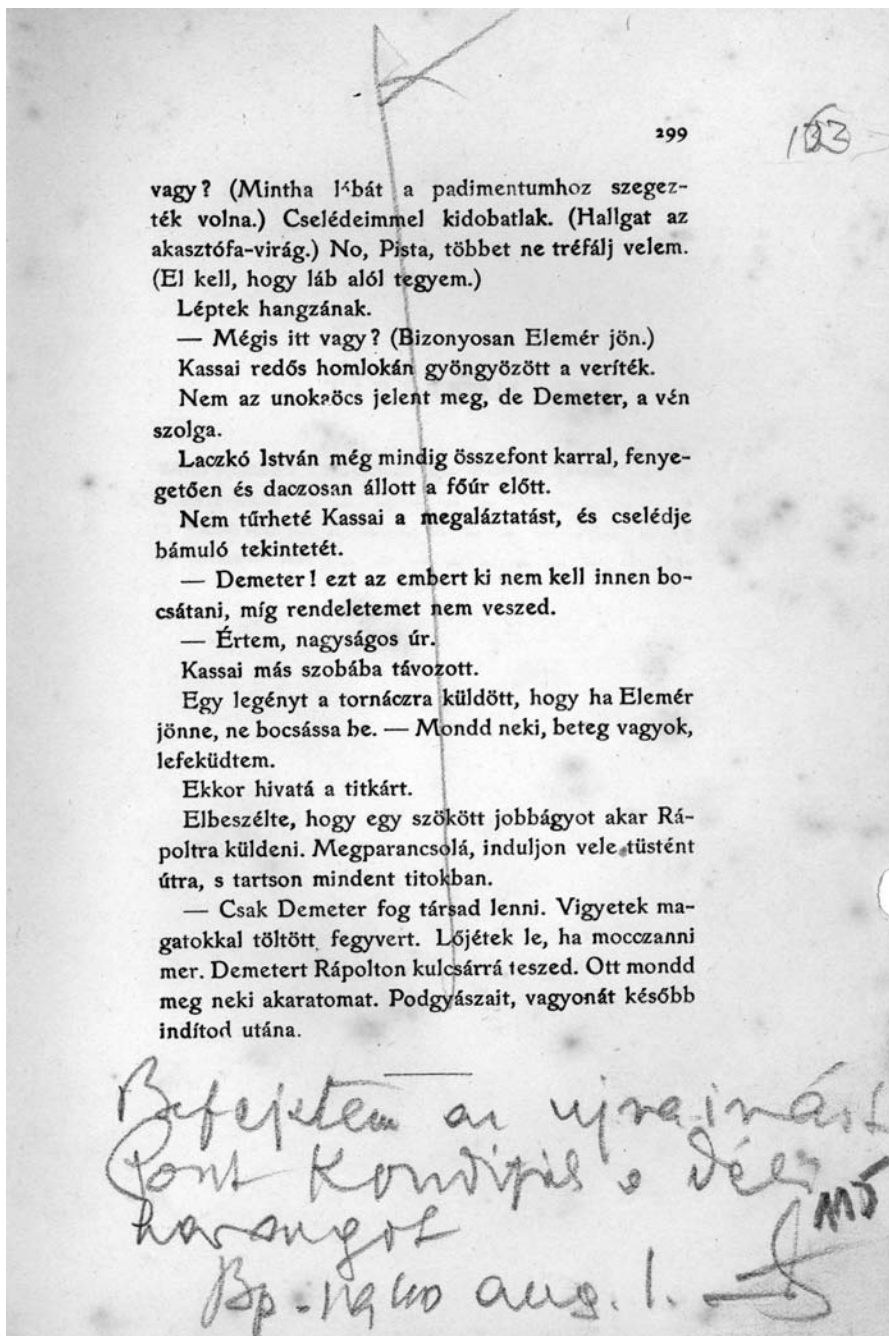 299
133
vagy? (Mintha lábát a padimentumhoz szegez-
ték volna.) Cselédeimmel kidobatlak. (Hallgat az
akasztófa-virág.) No, Pista, többet ne tréfálj velem.
(El kell, hogy láb alól tegyem.)
Léptek hangzának.
— Mégis itt vagy? (Bizonyosan Elemér jön.)
Kassai redős homlokán gyöngyözött a veríték.
Nem az unokaöcs jelent meg, de Demeter, a vén
szolga.
Laczkó István még mindig összefont karral, fenye-
getően és daczosan állott a főúr előtt.
Nem tűrheté Kassai a megaláztatást, és cselédje
bámuló tekintetét.
— Demeter! ezt az embert ki nem kell innen bo-
csátani, míg rendeletemet nem veszed.
— Értem, nagyságos úr.
Kassai más szobába távozott.
Egy legényt a tornáczra küldött, hogy ha Elemér
jönne, ne bocsássa be. — Mondd neki, beteg vagyok,
lefeküdtem.
Ekkor hivatá a titkárt.
Elbeszélte, hogy egy szökött jobbágyot akar Rá-
poltra küldeni. Megparancsolá, induljon vele tüstént
útra, s tartson mindent titokban.
— Csak Demeter fog társad lenni. Vigyetek ma-
gatokkal töltött fegyvert. Lőjétek le, ha mocczanni
mer. Demetert Rápolton kulcsárrá teszed. Ott mondd
meg neki akaratomat. Podgyászait, vagyonát később
indítod utána.
Befejeztem az ujraírást
Pont Kondítják a déli
harangot
Bp. 1940 aug. 1.